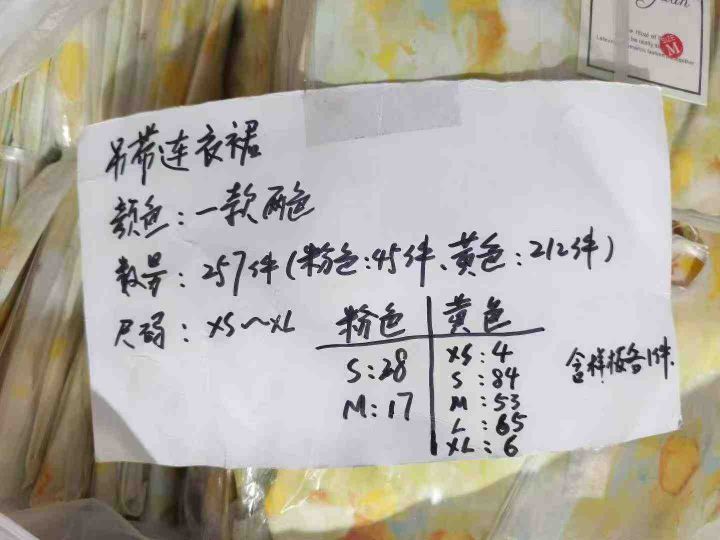 吊带连衣裙
颜色:一款两色
数量:257件(粉色:45件、黄色:212件)
尺码:XS~XL
粉色
S:28
M:17
黄色
XS:4
S:84
M:53
L:65
XL:6
含样板各1件.
M